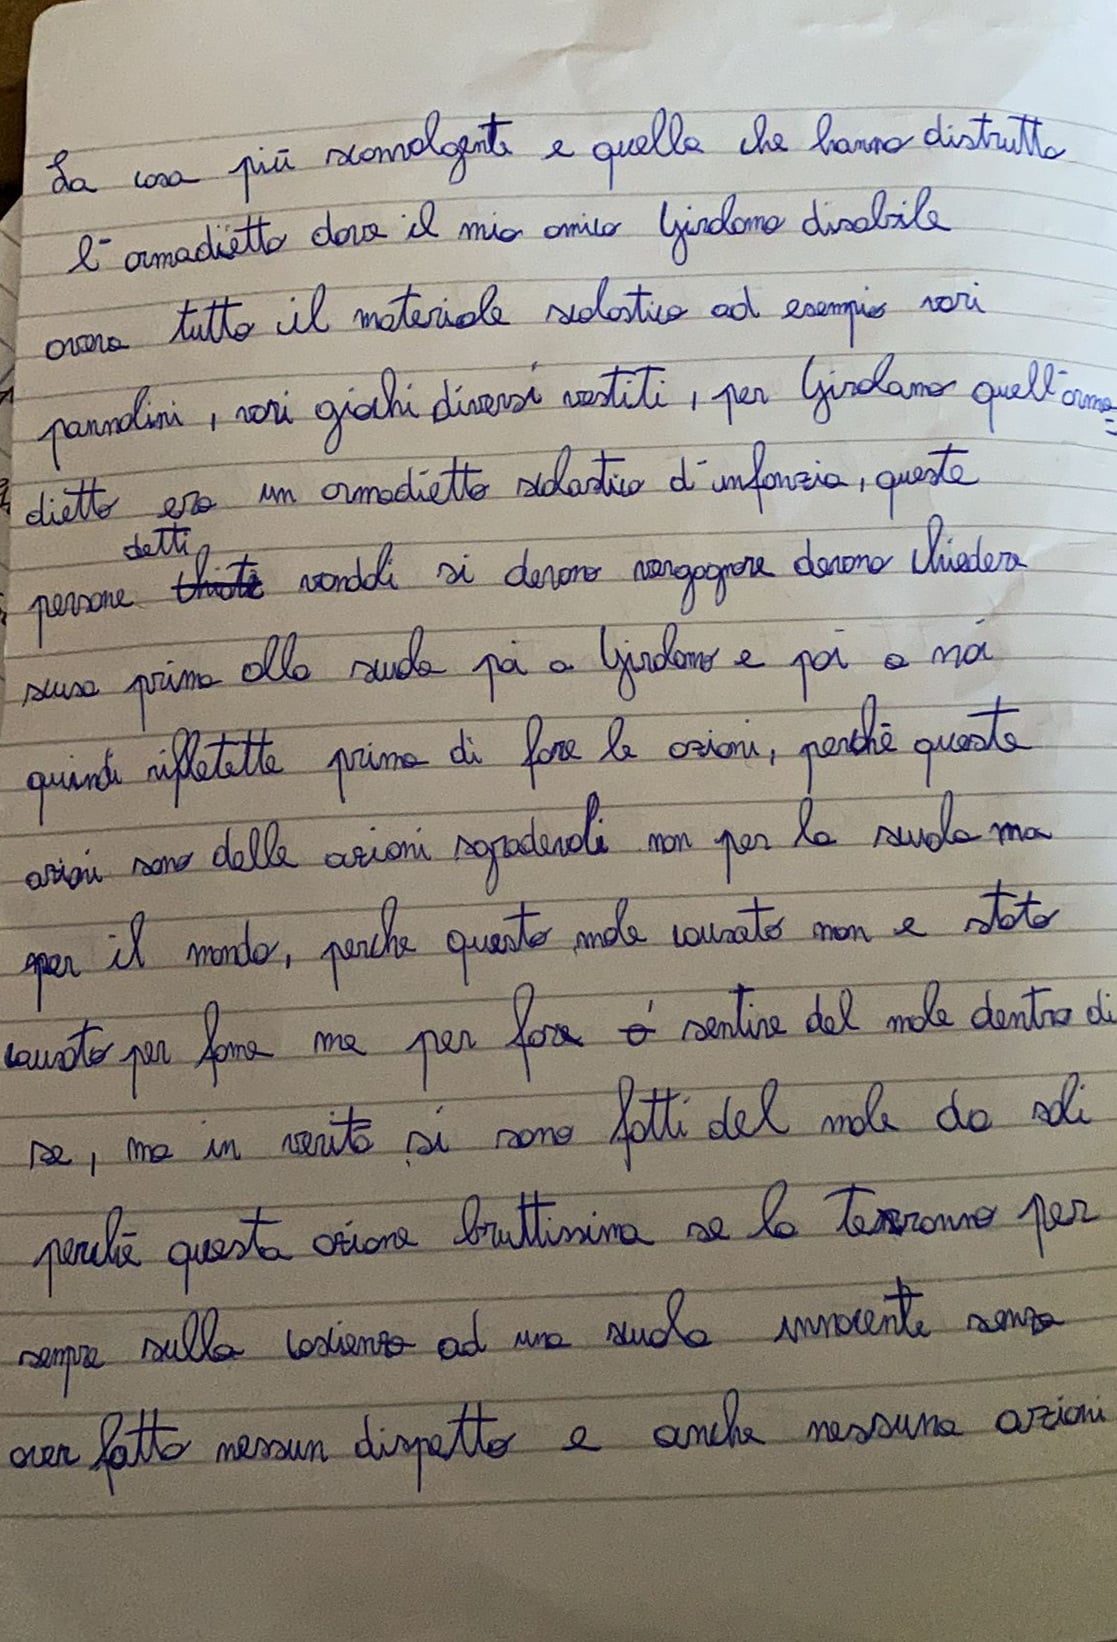 La cosa più sconvolgente e quella che hanno distrutto
l'armadietto dove il mio amico Girolamo disabile
avera tutto il materiale scolastico ad esempio vari
pannolini, vari giochi diversi vestiti, per Girolamo quell'arma=
dietto era un armadietto scolastico d'infanzia, queste
detti
persone vandali si devono vergognare devono chiedere
scusa prima alla scuola poi a Girolamo e poi a noi
quindi rifletette prima di fare le azioni, perchè queste
azioni sono delle azioni sgradevoli non per la scuola ma
per il mondo, perche questo male causato non e stato
causato per fame ma per fare sentire del male dentro di
se, ma in verità si sono fatti del male da soli
perchè questa azione bruttissima se la terranno per
sempre sulla coscienza ad una scuola innocente senza
aver fatto nessun dispetto e anche nessuna azioni